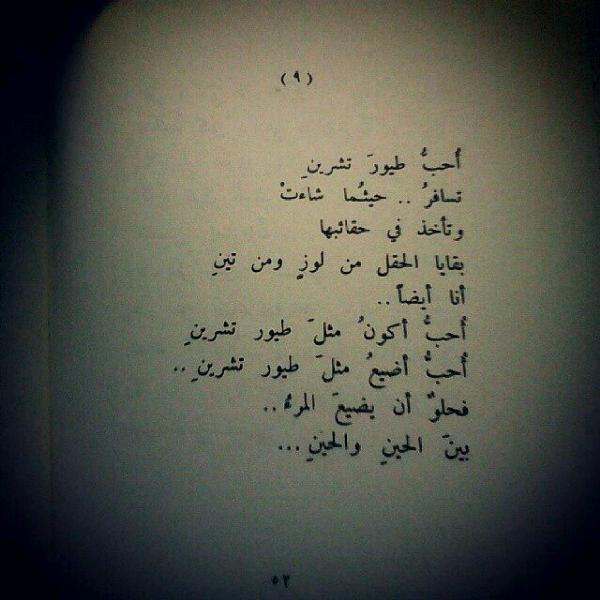 (٩)
أُحبُّ طيورَ تشرينِ
تسافرُ .. حيثُما شاءتْ
وتأخذ في حقائبها
بقايا الحقل من لوزٍ ومن تينِ
أنا أيضاً ..
أُحبُّ أكونُ مثلَ طيور تشرينِ
أُحبُّ أضيعُ مثلَ طيور تشرينِ ..
فحلوٌ أن يضيعَ المرءُ ..
بينَ الحينِ والحينِ ...
٥٣